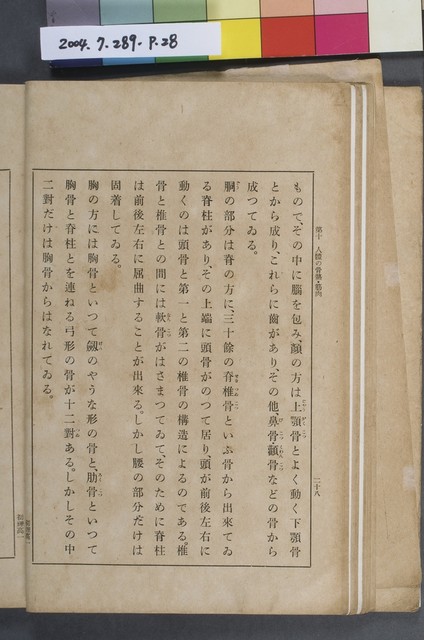 2004.7.289.P.28
第十 人體の骨骼・筋肉
二十八
もので、その中に腦を包み、顏の方は上顎骨とよく動く下顎骨
とから成り、これらに齒があり、その他、鼻骨顴骨などの骨から
成つてゐる。
胴の部分は脊の方に、三十餘の脊椎骨といふ骨から出來てゐ
る脊柱があり、その上端に頭骨がのつて居り、頭が前後左右に
動くのは頭骨と第一と第二の椎骨の構造によるのである。椎
骨と椎骨との間には軟骨がはさまつてゐて、そのために脊柱
は前後左右に屈曲することが出來る。しかし腰の部分だけは
固着してゐる。
胸の方には胸骨といつて劒のやうな形の骨と、肋骨といつて
胸骨と脊柱とを連ねる弓形の骨が十二對ある。しかしその中
二對だけは胸骨からはなれてゐる。